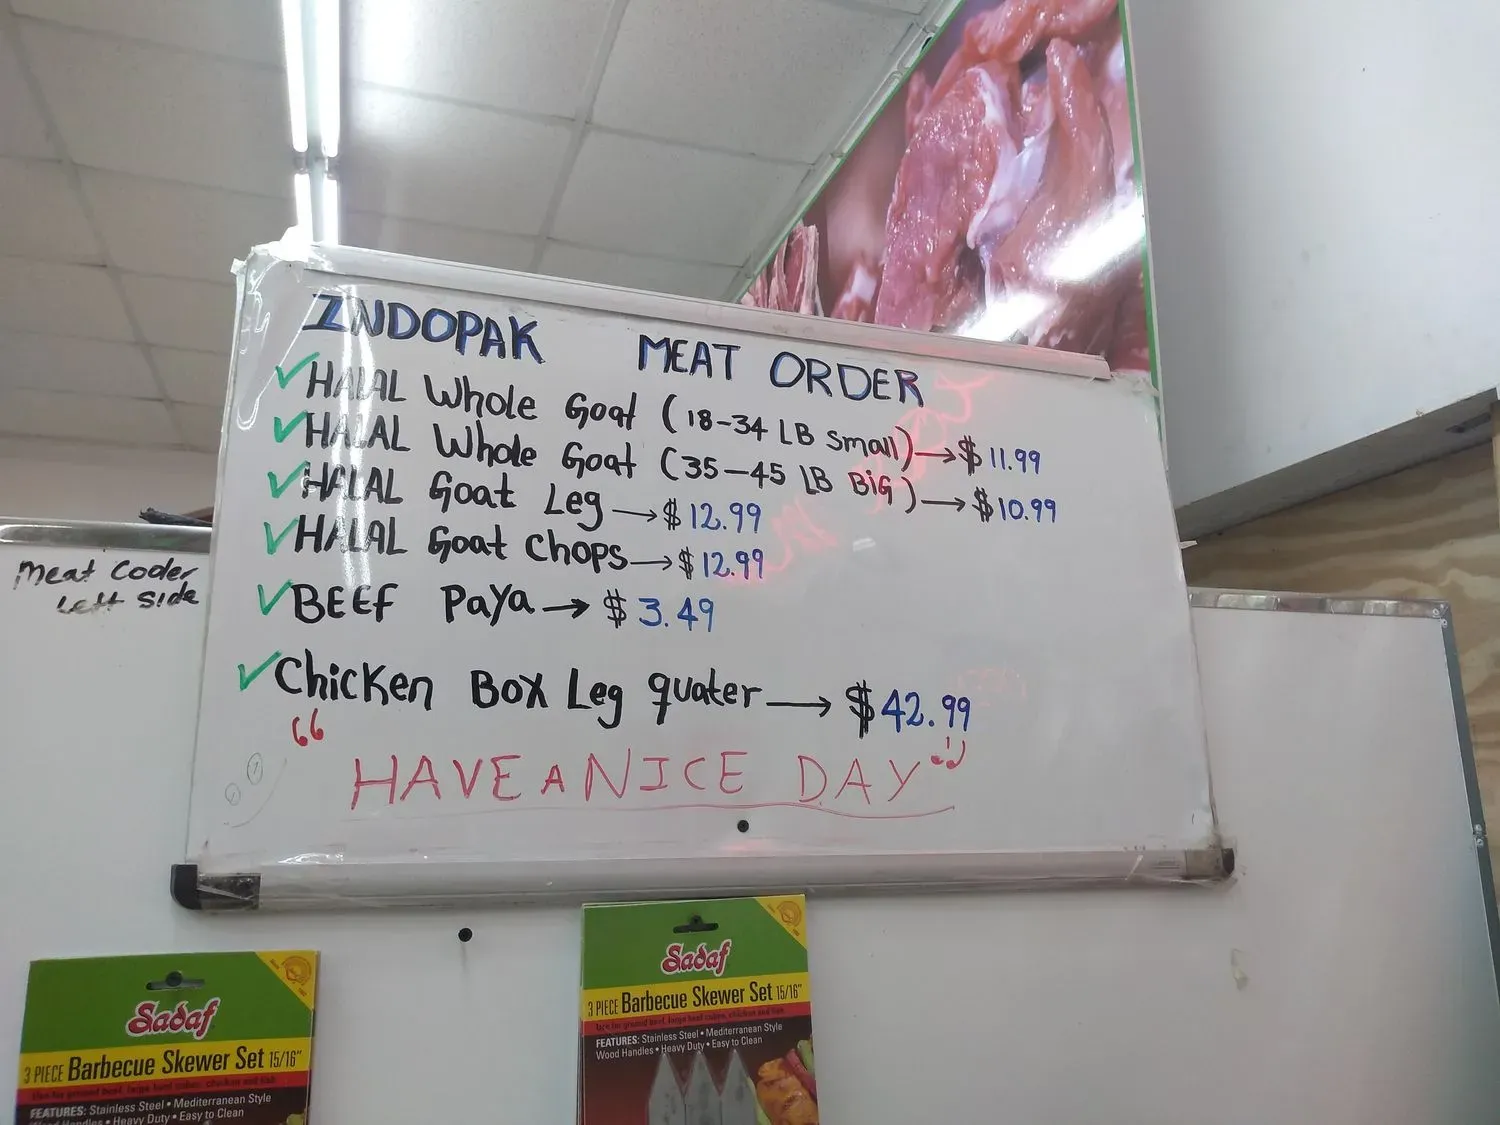 INDOPAK MEAT ORDER
✓ HALAL Whole Goat (18-34 LB Small) → $ 11.99
✓ HALAL Whole Goat (35-45 LB BiG) → $ 10.99
✓ HALAL Goat Leg → $ 12.99
✓ HALAL Goat Chops → $ 12.99
✓ BEEF PaYa → $ 3.49
✓ Chicken BOX Leg quater → $ 42.99
“HAVE A NICE DAY”
Meat Cooler
Left Side
Sadaf
3 PIECE Barbecue Skewer Set 15/16"
FEATURES: Stainless Steel • Mediterranean Style
Wood Handles • Heavy Duty • Easy to Clean
Sadaf
3 PIECE Barbecue Skewer Set 15/16"
Use for ground beef, large beef cubes, chicken and fish
FEATURES: Stainless Steel • Mediterranean Style
Wood Handles • Heavy Duty • Easy to Clean